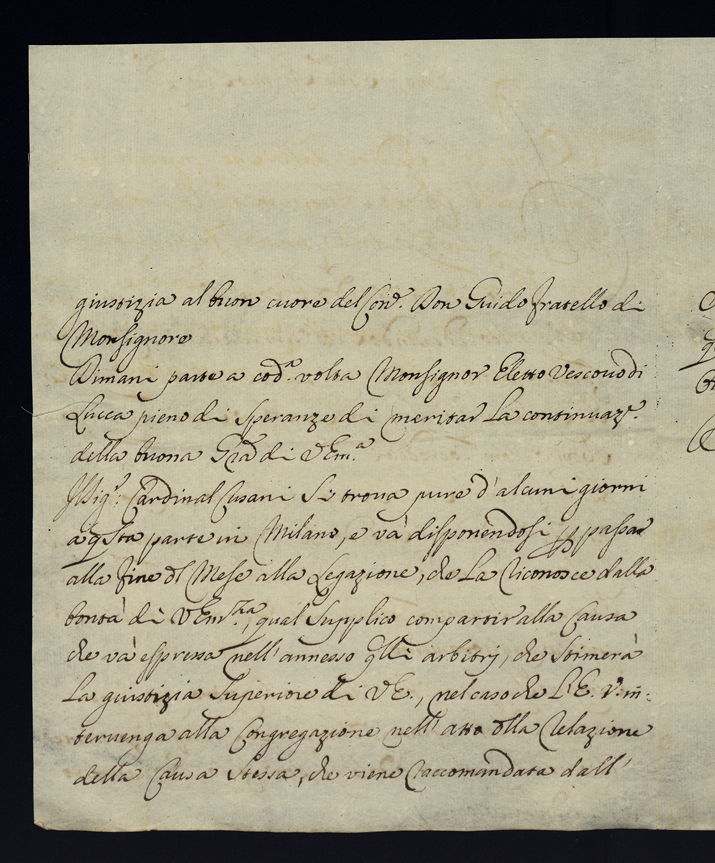 giustizia al buon cuore del Con.e Don Guido fratello di
Monsignore
Dimani parte a cod.a volta Monsignor Eletto Vescovo di
Lucca pieno di speranze di meritar La continuaz.e
della buona Gra di V Em.a
Il Sig.r Cardinal Cusani Si trova pure d'alcuni giorni
a qsta parte in Milano, e và disponendosi p passar
alla fine dl Mese alla Legazione, che La riconosce dalla
bontà di V Em.za, qual Supplico compartir alla Causa
che và espressa nell'annesso qlli arbitrj, che Stimerà
La giustizia Superiore di V E., nel caso che L'E. V. in:
tervenga alla Congregazione nell'atto dlla Relazione
della Causa Stessa, che viene raccomandata dall'